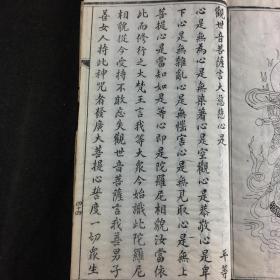 觀世音菩薩言大慈悲心是平等
心是無為心是無染著心是空觀心是恭敬心是卑
下心是無雜亂心是無惱害心是無見取心是無上
菩提心是當知如是等心即是陀羅尼相貌汝當依
此而修行之大梵王言我等大眾今始識此陀羅尼
相貌從今受持不敢忘失觀世音菩薩言若善男子
善女人持此神咒者發廣大菩提心誓度一切眾生